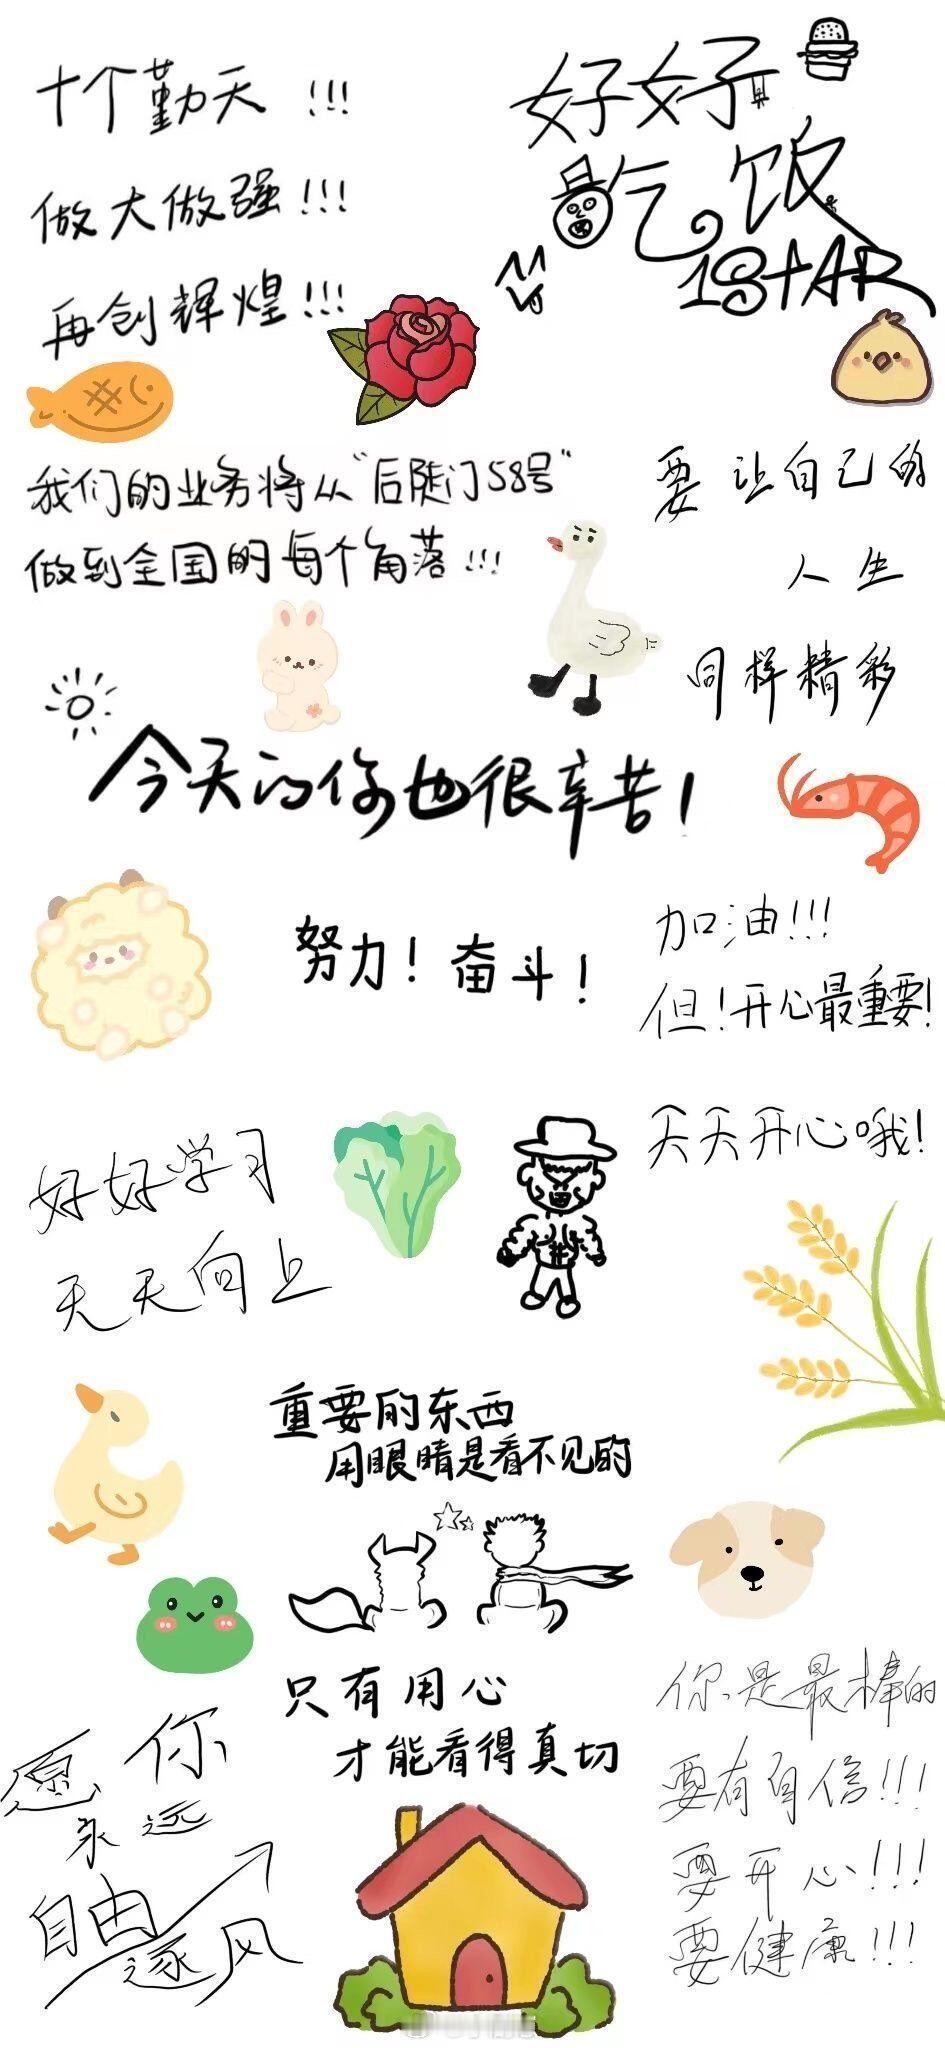 十个勤天!!!
做大做强!!!
再创辉煌!!!
好好
吃饭
1StAR
我们的业务将从“后陡门58号”
做到全国的每个角落!!!
要让自己的
人生
同样精彩
今天的你也很辛苦!
努力!奋斗!
加油!!!
但!开心最重要!
好好学习
天天向上
天天开心哦!
重要的东西
用眼睛是看不见的
只有用心
才能看得真切
愿你
永远
自由
逐风
你是最棒的
要有自信!!!
要开心!!!
要健康!!!